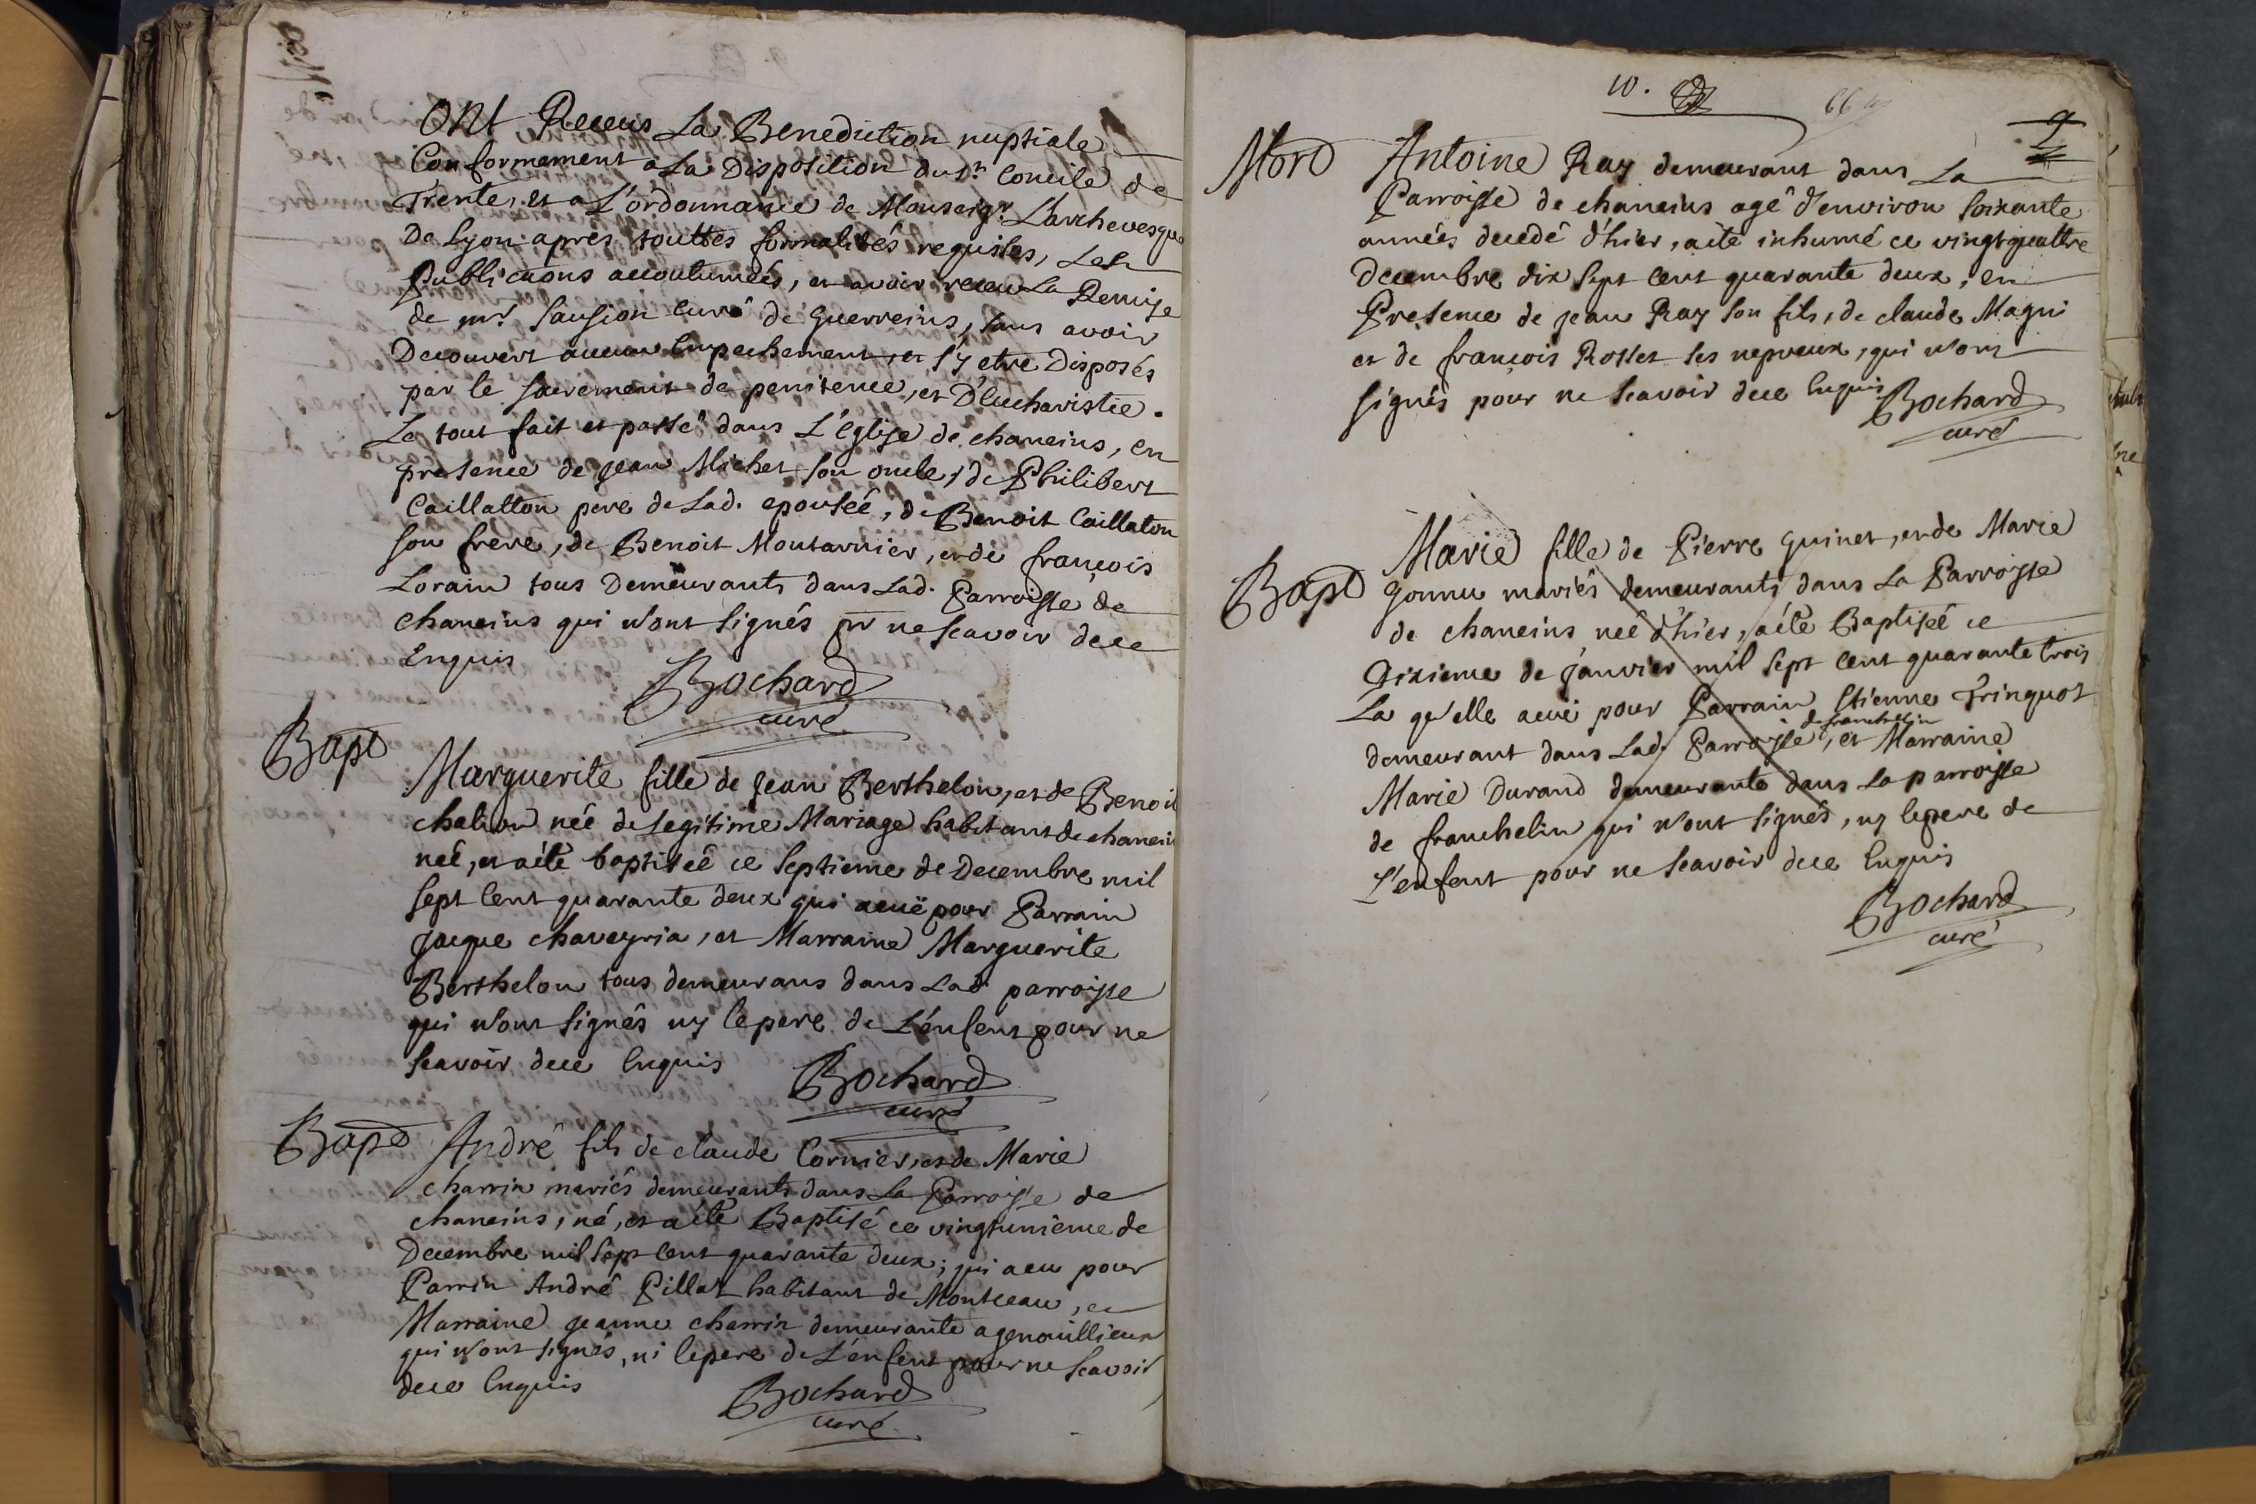 ONt Receus La Benediction nuptiale
Conformement a La Disposition du St. Concile de
Trente, et a L'ordonnance de Monseigr. L'archevesque
De Lyon apres touttes formalités requises, Les
Publicaons accoutumées, et avoir receu La Remise
de mr. Sausion curé de Guerreins, sans avoir
Decouvert aucun Empechement, et s'y etre Disposés
par le sacrement de penitence, et D'Eucharistie.
Le tout fait et passé dans L'église de chaneins, en
presence de jean Michet son oncle, de Philibert
Caillatton pere de Lad. epousée, de Benoit Caillaton
son frere, de Benoit Moutarnier, et de françois
Lorain tous Demeurants dans Lad. Parroisse de
chaneins qui n'ont signés pr ne scavoir de ce
Enquis
Bochard
curé
Bapt
Marguerite fille de jean Berthelon, et de Benoit
chalion née de Legitime Mariage habitant de chanein
née, et a été baptisée ce septieme de Decembre mil
sept cent quarante deux qui a eüe pour Parrain
jacque chaveyria, et Marraine Marguerite
Berthelon tous demeurans dans Lad. parroisse
qui n'ont signés ny le pere de L'enfent pour ne
scavoir de ce Enquis
Bochard
curé
Bapt
André fils de claude Cornier, et de Marie
charrin mariés demeurants dans La Parroisse de
chaneins, né, et a été Baptisé ce vingtunieme de
Decembre mil sept cent quarante deux; qui a eu pour
Parrin André Pillat habitant de Montceau, et
Marraine jeanne charrin demeurante a genouillieux
qui n'ont signés, ni le pere de L'enfent pour ne scavoir
de ce Enquis
Bochard
curé
10.
66
9
Mort
Antoine Ray demeurant dans La
Parroisse de chaneins agé d'environ soixante
années decedé d'hier, a été inhumé ce vingt quattre
Decembre dix sept cent quarante deux, en
Presence de jean Ray son fils, de claude Magni
et de françois Rosset ses nepveux, qui n'ont
signés pour ne scavoir de ce Enquis
Bochard
curé
Bapt
Marie fille de Pierre Guinet, et de Marie
Gonnu mariés demeurants dans La Parroisse
de chaneins née d'hier, a été Baptisée ce
Dixieme de janvier mil sept cent quarante trois
La qu'elle a eüe pour Parrain Etienne Trinquot
de franchelin
demeurant dans Lad. Parroisse, et Marraine
Marie Durand demeurante dans La parroisse
de franchelin qui n'ont signés, ny le pere de
L'enfent pour ne scavoir de ce Enquis
Bochard
curé